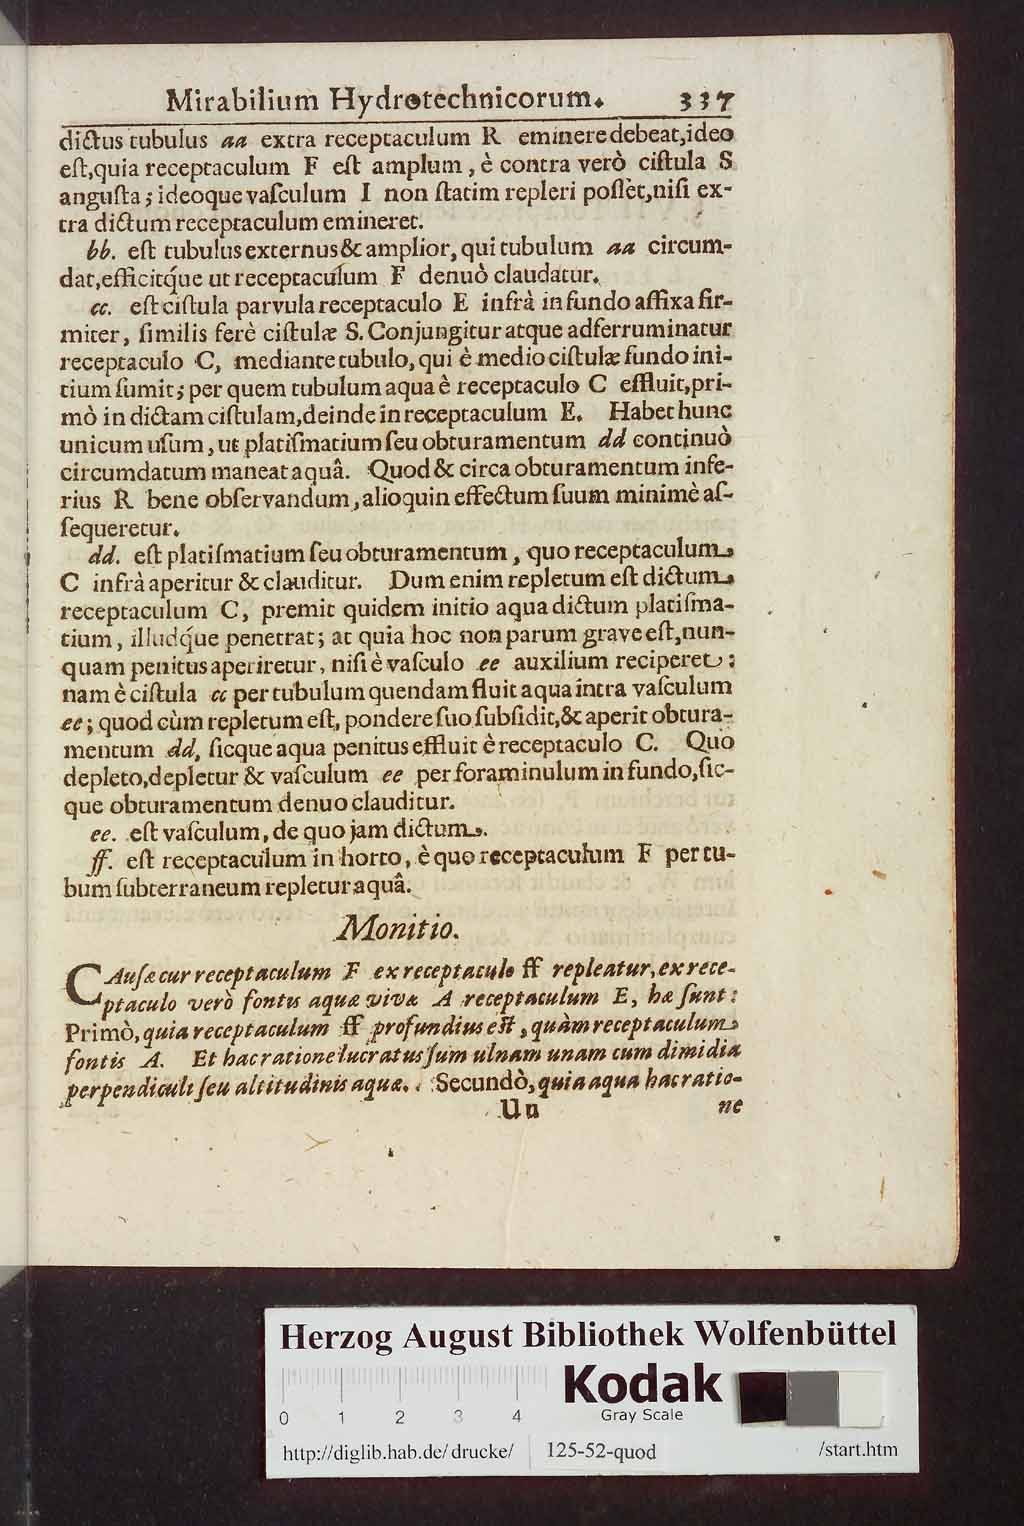 Mirabilium Hydrotechnicorum. 337
dictus tubulus aa extra receptaculum R eminere debeat, ideo
eſt, quia receptaculum F eſt amplum, è contra verò ciſtula S
anguſta; ideoque vaſculum I non ſtatim repleri poſſèt, niſi ex-
tra dictum receptaculum emineret.
bb. eſt tubulus externus & amplior, qui tubulum aa circum-
dat, efficitq́ue ut receptaculum F denuò claudatur.
cc. eſt ciſtula parvula receptaculo E infrà in fundo affixa fir-
miter, ſimilis ferè ciſtulæ S. Conjungitur atque adferruminatur
receptaculo C, mediante tubulo, qui è medio ciſtulæ fundo ini-
tium ſumit; per quem tubulum aqua è receptaculo C effluit, pri-
mò in dictam ciſtulam, deinde in receptaculum E. Habet hunc
unicum uſum, ut platiſmatium ſeu obturamentum dd continuò
circumdatum maneat aquâ. Quod & circa obturamentum infe-
rius R bene obſervandum, alioquin effectum ſuum minimè aſ-
ſequeretur.
dd. eſt platiſmatium ſeu obturamentum, quo receptaculum
C infrà aperitur & clauditur. Dum enim repletum eſt dictum
receptaculum C, premit quidem initio aqua dictum platiſma-
tium, illudq́ue penetrat; at quia hoc non parum grave eſt, nun-
quam penitus aperiretur, niſi è vaſculo ee auxilium reciperet:
nam è ciſtula cc per tubulum quendam fluit aqua intra vaſculum
ee; quod cùm repletum eſt, pondere ſuo ſubſidit, & aperit obtura-
mentum dd, ſicque aqua penitus effluit è receptaculo C. Quo
depleto, depletur & vaſculum ee per foraminulum in fundo, ſic-
que obturamentum denuo clauditur.
ee. eſt vaſculum, de quo jam dictum.
ff. eſt receptaculum in horto, è quo receptaculum F per tu-
bum ſubterraneum repletur aquâ.
Monitio.
CAuſæ cur receptaculum F ex receptaculo ff repleatur, ex rece-
ptaculo verò fontis aquæ vivæ A receptaculum E, hæ ſunt:
Primò, quia receptaculum ff profundius eſt, quàm receptaculum
fontis A. Et hac ratione lucratus ſum ulnam unam cum dimidia
perpendiculi ſeu altitudinis aquæ. Secundò, quia aqua hac ratio-
Uu ne
Herzog August Bibliothek Wolfenbüttel
Kodak
Gray Scale
0 1 2 3 4
http://diglib.hab.de/drucke/ 125-52-quod /start.htm